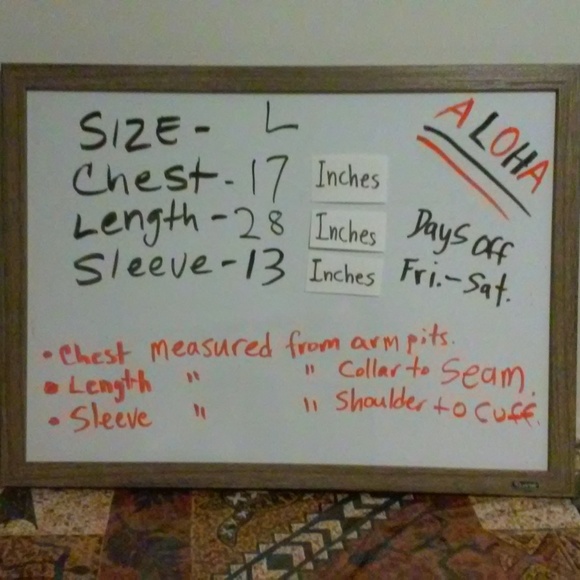 SIZE - L
ALOHA
Chest - 17 Inches
Length - 28 Inches
Sleeve - 13 Inches
Days off
Fri. - Sat.
• Chest measured from arm pits.
• Length " " Collar to Seam.
• Sleeve " " Shoulder to Cuff.